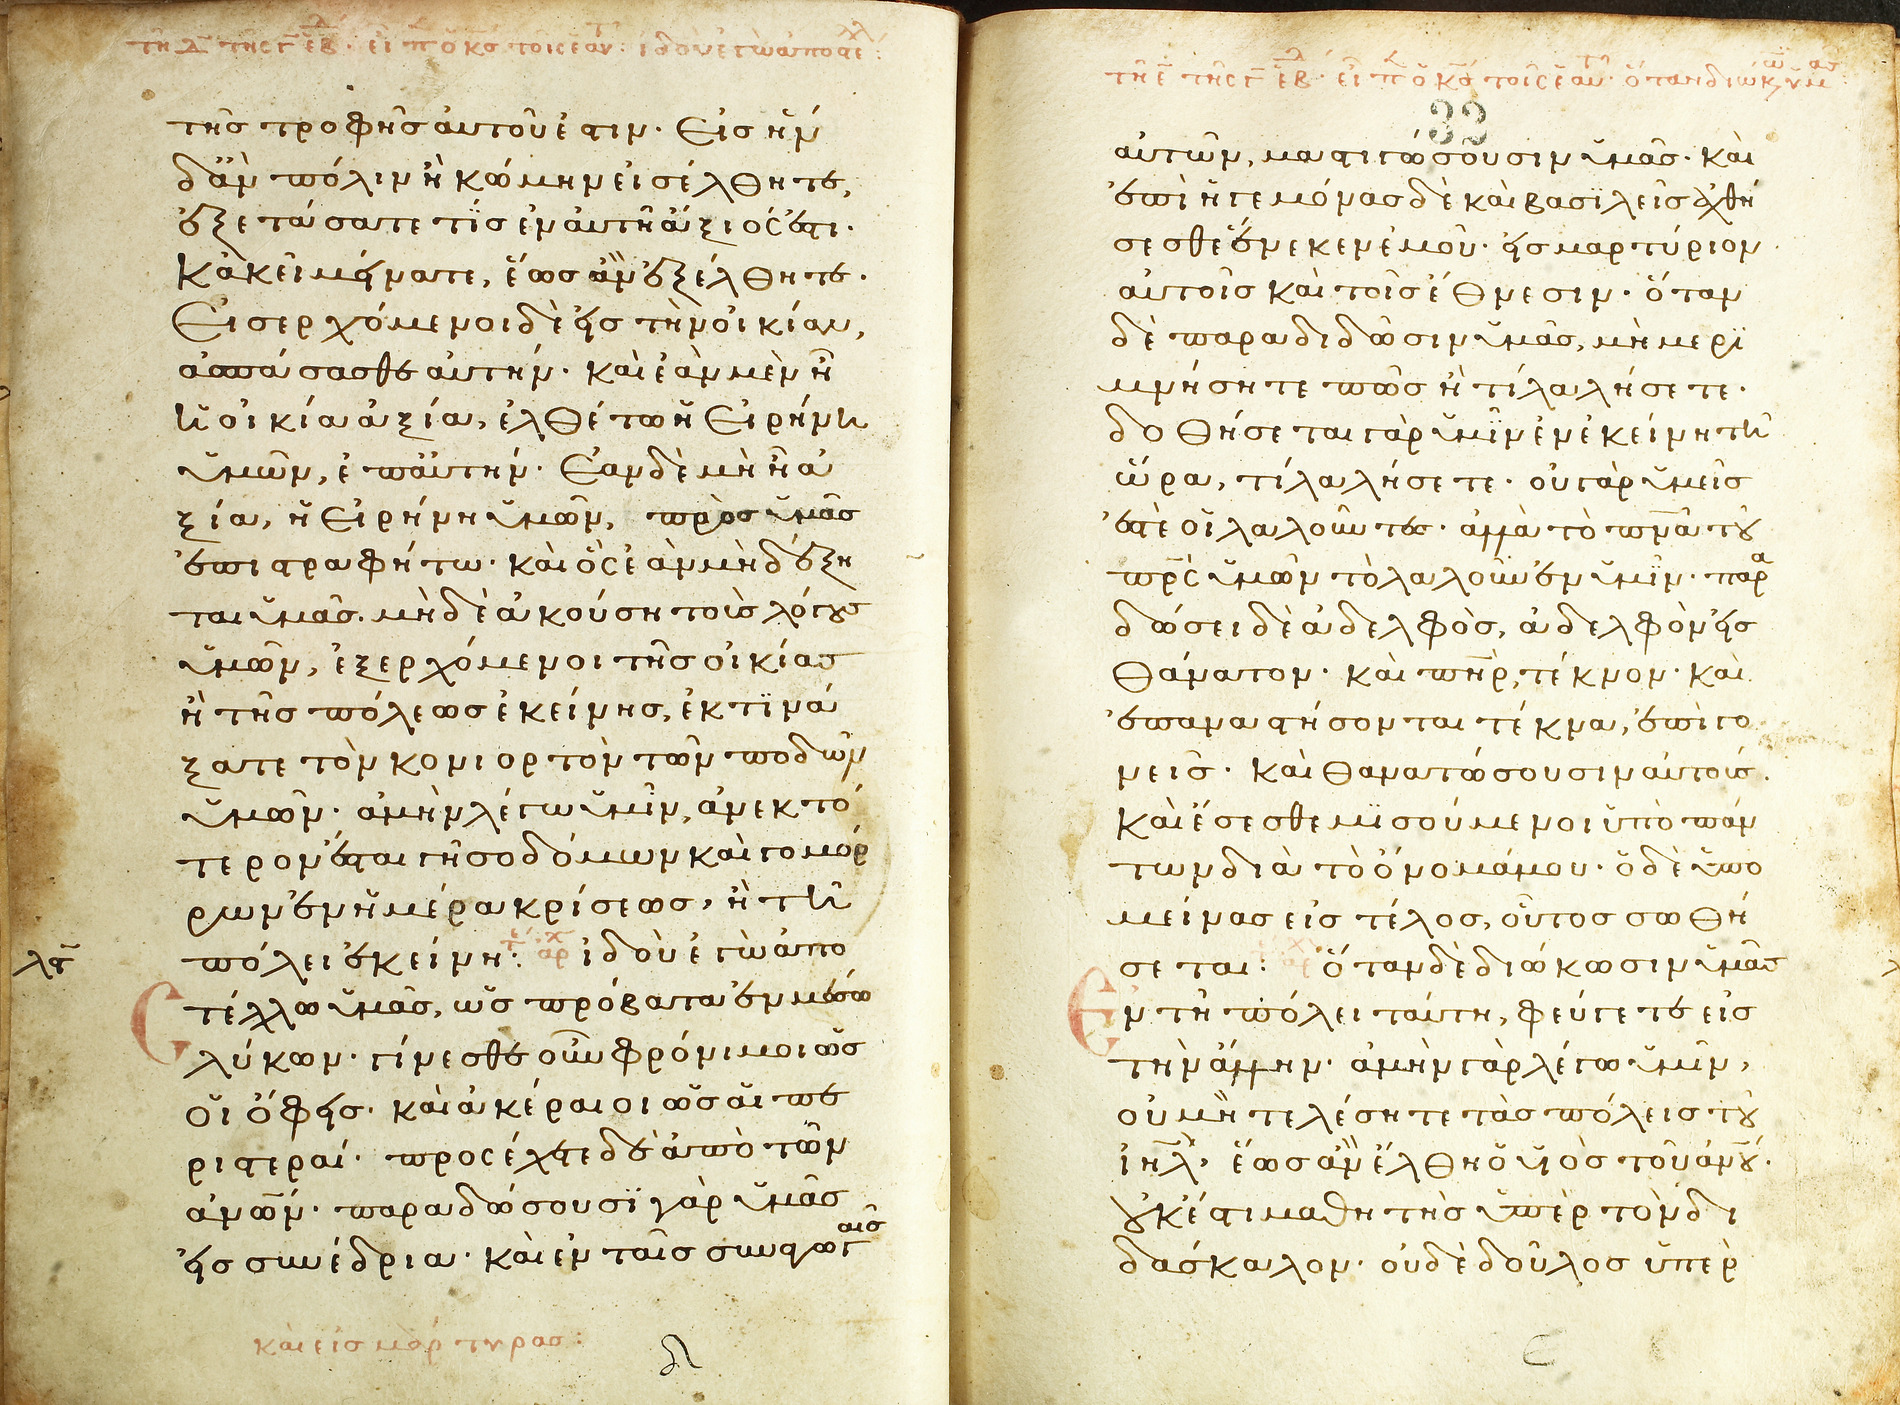 τῆς τροφῆς αὐτοῦ ἐστιν· Εἰς ἣν
δἂν πόλιν ἢ κώμην εἰσέλθητε,
ἐξετάσατε τίς ἐν αὐτῆ ἄξιός ἐστι·
Κἀκεῖ μείνατε, ἕως ἂν ἐξέλθητε·
Εἰσερχόμενοι δὲ εἰς τὴν οἰκίαν,
ἀσπάσασθε αὐτήν· καὶ ἐὰν μὲν ῆ
ἡ οἰκία ἀξία, ἐλθέτω ἡ Εἰρήνη
ὑμῶν, ἐπ' αὐτήν· Ἐὰν δὲ μὴ ῆ ἀ
ξία, ἡ Εἰρήνη ὑμῶν, πρὸς ὑμᾶς
ἐπιστραφήτω· καὶ ὃς ἐὰν μὴ δέξη
ται ὑμᾶς. μηδὲ ἀκούση τοὺς λόγους
ὑμῶν, ἐξερχόμενοι τῆς οἰκίας
ἢ τῆς πόλεως ἐκείνης, ἐκτϊνά
ξατε τὸν κονιορτὸν τῶν ποδῶν
ὑμῶν· ἀμὴν λέγω ὑμῖν, ἀνεκτό
τερον ἔσται γῆ σοδόμων καὶ γομόρ
ρων ἐν ἡμέρα κρίσεως, ἢ τῆ
πόλει ἐκείνη: ἀρχ ἰδοὺ ἐγὼ ἀπο
στέλλω ὑμᾶς, ὡς πρόβατα ἐν μέσω
λύκων· γίνεσθε οὖν φρόνιμοι ὡς
οἱ ὄφεις· καὶ ἀκέραιοι ὡς αἱ πε
ριστεραί· προσέχετε δὲ ἀπὸ τῶν
ἀνων· παραδώσουσϊ γὰρ ὑμᾶς
εἰς συνέδρια· καὶ ἐν ταῖς συναγωγαῖς
καὶ εἰς μάρτυρας:
32
αὐτῶν, μαστιγώσουσιν ὑμᾶς· καὶ
ἐπὶ ἡγεμόνας δὲ καὶ βασϊλεῖς ἀχθή
σεσθε ἕνεκεν ἐμοῦ· εἰς μαρτύριον
αὐτοῖς καὶ τοῖς ἔθνεσιν· ὅταν
δὲ παραδιδῶσιν ὑμᾶς, μὴ μερϊ
μνήσητε πῶς ἢ τί λαλήσετε·
δοθήσεται γὰρ ὑμῖν ἐν ἐκείνη τῆ
ὥρα, τί λαλήσετε· οὐ γὰρ ὑμεῖς
ἐστὲ οἱ λαλοῦντες· ἀλλὰ τὸ πνα τοῦ
πρς ὑμῶν τὸ λαλοῦν ἐν ὑμῖν· παρα
δώσει δὲ ἀδελφὸς, ἀδελφὸν εἰς
θάνατον· καὶ πηρ, τέκνον· καὶ
ἐπαναστήσονται τέκνα, ἐπὶ γο
νεῖς· καὶ θανατώσουσιν αὐτούς.
Καὶ ἔσεσθε μϊσούμενοι ὑπὸ πάν
των διὰ τὸ ὄνομά μου· ὁ δὲ ὑπο
μείνας εἰς τέλος, οὗτος σωθή
σεται: ὅταν δὲ διώκωσιν ὑμᾶς
ἐν τῆ πόλει ταύτη, φεύγετε εἰς
τὴν ἄλλην· ἀμὴν γὰρ λέγω ὑμῖν,
οὐ μὴ τελέσητε τὰς πόλεις τοῦ
ιηλ, ἕως ἂν ἔλθη ὁ υἱὸς τοῦ ανου·
Οὐκ ἔστι μαθητὴς ὑπὲρ τὸν δι
δάσκαλον· οὐδὲ δοῦλος ὑπὲρ